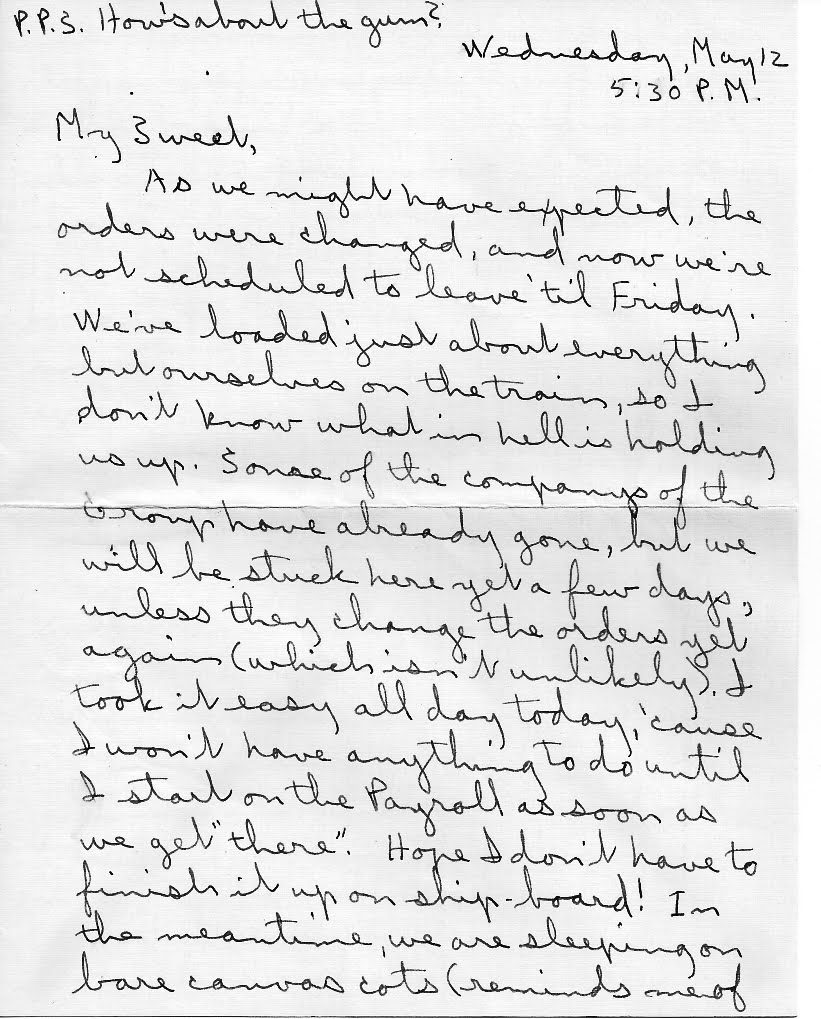 P.P.S. How's about the gum?
Wednesday, May 12
5:30 P.M.
My Sweet,
As we might have expected, the
orders were changed, and now we're
not scheduled to leave 'til Friday.
We've loaded just about everything
but ourselves on the train, so I
don't know what in hell is holding
us up. Some of the companys of the
Group have already gone, but we
will be stuck here yet a few days,
unless they change the orders yet
again (which isn't unlikely). I
took it easy all day today, 'cause
I won't have anything to do until
I start on the Payroll as soon as
we get "there". Hope I don't have to
finish it up on ship-board! In
the meantime, we are sleeping on
bare canvas cots (reminds me of